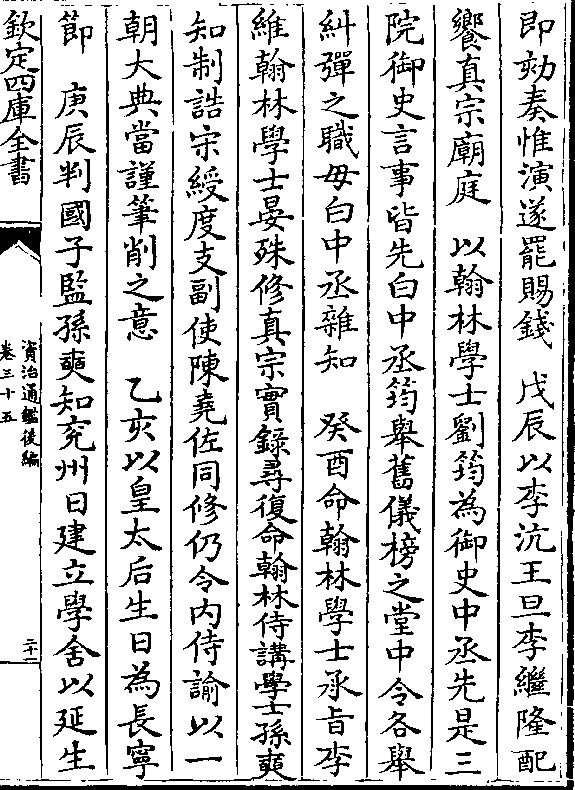 即劾奏惟演遂罷賜錢　戊辰以李沆王旦李繼隆配
饗真宗廟庭　以翰林學士劉筠為御史中丞先是三
院御史言事皆先白中丞筠舉舊儀榜之堂中令各舉
糾彈之職毋白中丞雜知　癸酉命翰林學士承旨李
維翰林學士晏殊修真宗實錄尋復命翰林侍講學士孫奭
知制誥宋綬度支副使陳堯佐同修仍令內侍諭以一
朝大典當謹筆削之意　乙亥以皇太后生日為長寧
節　庚辰判國子監孫奭知兖州日建立學舍以延生
欽定四庫全書
資治通鑑後編
卷三十五
二十二